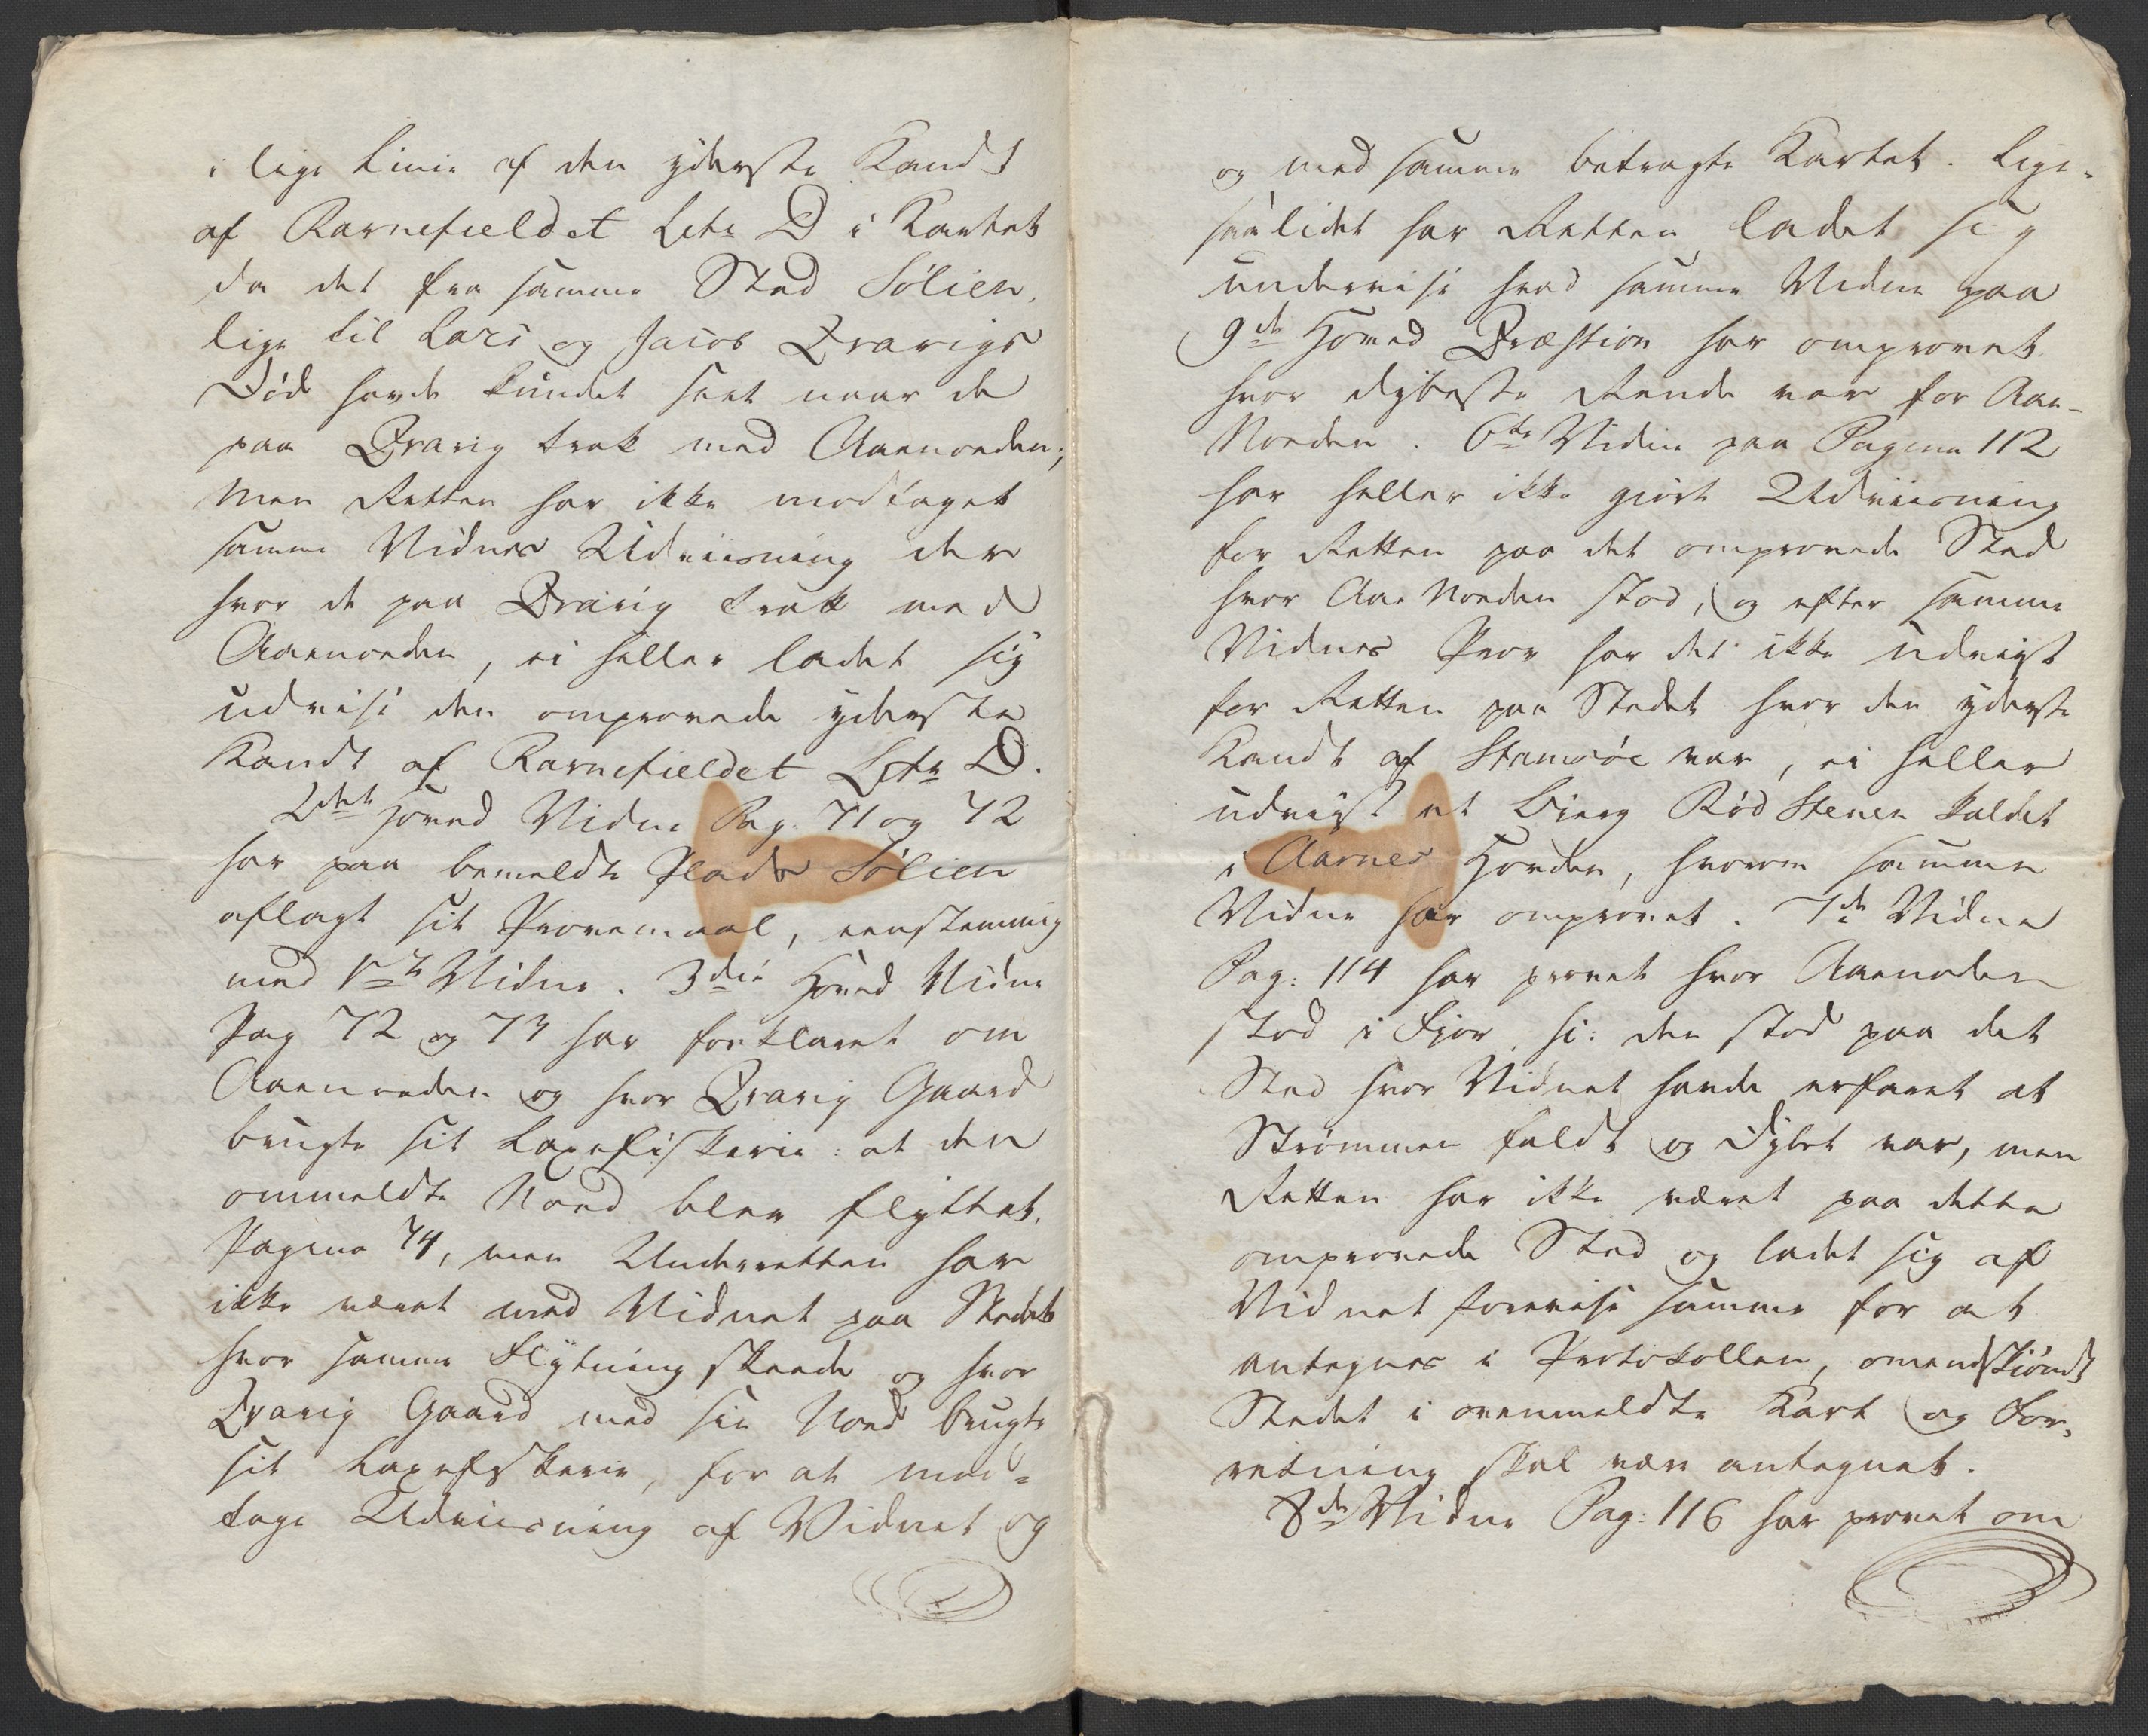 i lige Linie af den yderste Kandt
af Ravnefieldet Litr D i Kartet
da det fra samme Sted Sølien,
lige til Lars og Jacob Qvavigs
Død havde kundet seet naar de
paa Qvavig trak med Aaenoeden;
men Retten har ikke modtaget
samme Vidnes Udviisning der
hvor de paa Qvavig trak med
Aaenoeden, ei heller ladet sig
udvise den omprovede yderste
Kandt af Ravnefieldet Litr D.
2det Hoved Vidne Pag. 71 og 72
har paa bemeldte Plads Sølien
aflagt sit Provemaal, eenstemmig
med 1ste Vidne. 3die Hoved Vidne
Pag 72 og 73 har forklaret om
Aaenoeden og hvor Qvavig Gaard
brugte sit Laxefiskerie: at den
ommeldte Noed blev flyttet,
Pagina 74, men Underretten har
ikke været med Vidnet paa Stedet
hvor samme Flytning skeede og hvor
Qvavig Gaard med sin Noed brugte
sit Laxefiskerie, for at mod-
tage Udviisning af Vidnet og
og med samme betragte Kartet. Lige-
saalidet har Retten ladet sig
underrise hvad samme Vidne paa
9de Hoved Qvæstion har omprovet
hvor dybeste Rende var for Aae-
Noeden. 6te Vidne paa Pagina 112
har heller ikke giort Udviisning
for Retten paa det omprovede Sted
hvor Aae Noeden stod, og efter samme
Vidnes Prov har det ikke udviist
for Retten paa Stedet hvor den yderste
Kandt af Stamsøe var, ei heller
udviist et Bierg Rød Stenen kaldet
i Aarnes Horden, hvorom samme
Vidne har omprovet. 7de Vidne
Pag: 114 har provet hvor Aaenoden
stod i Fjor, si: den stod paa det
Sted hvor Vidnet havde erfaret at
Strømmen faldt og Dybet var, men
Retten har ikke været paa dette
omprovede Sted og ladet sig af
Vidnet forevise samme for at
antegnes i Protokollen, omendskiøndt
Stedet i ovenmeldte Kart og For-
retning skal være antegnet.
8de Vidne Pag: 116 har provet om